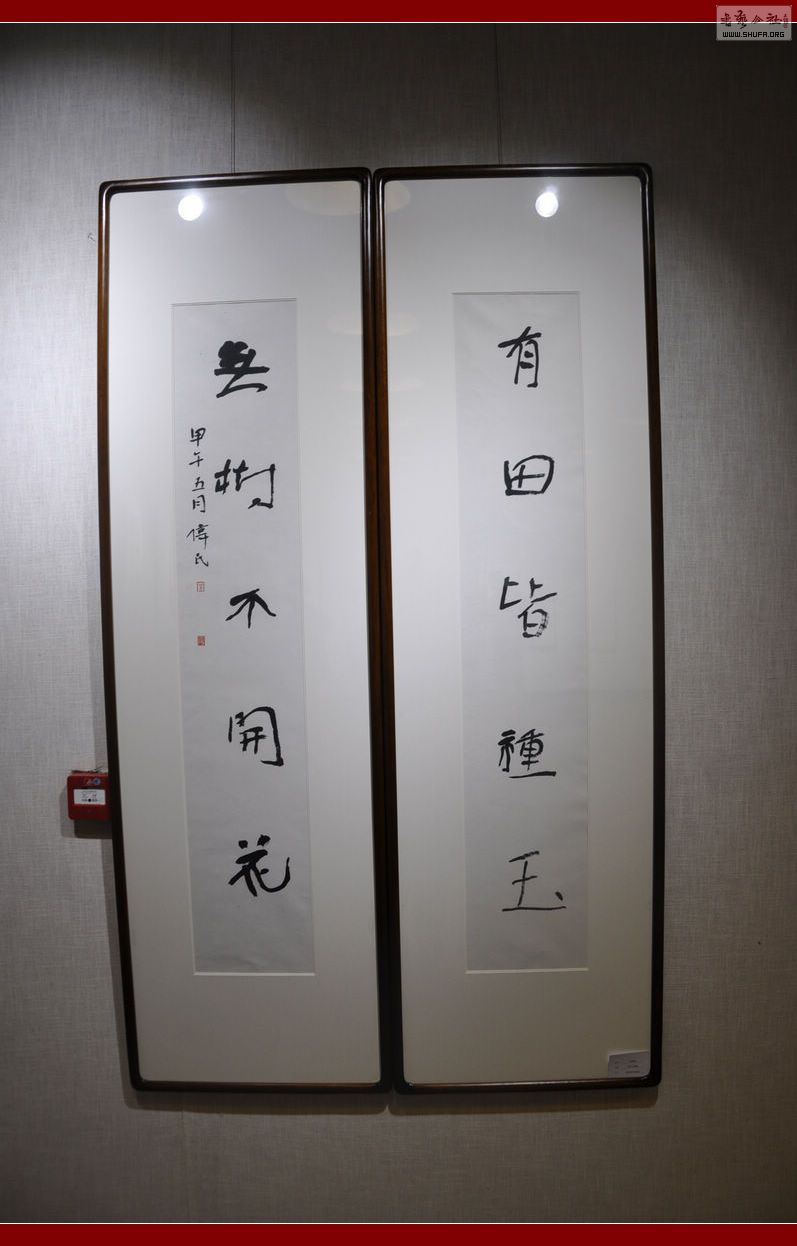 有田皆種玉
無樹不開花
甲午五月偉民
書藝公社
WWW.SHUFA.ORG